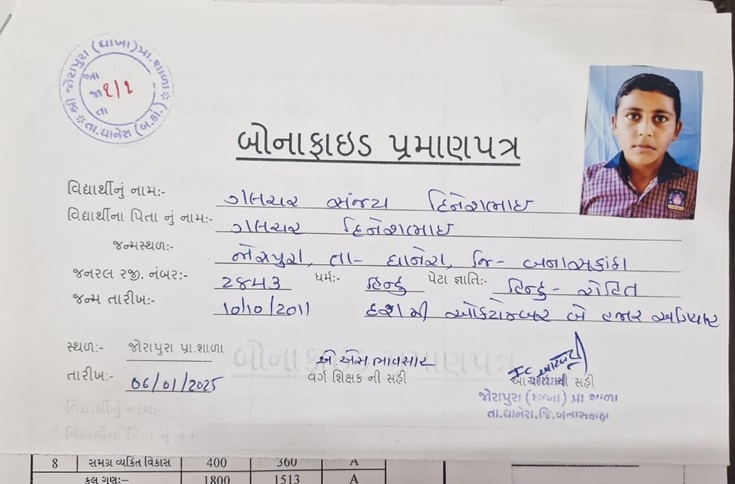 શ્રી જોરાપુરા (ધાખા) પ્રા.શાળા
આ
જા ૧/૨
તા
તા.ધાનેરા (બ.કાં.)
બોનાફાઇડ પ્રમાણપત્ર
વિદ્યાર્થીનું નામ:- ગલચર સંજય દિનેશભાઇ
વિદ્યાર્થીના પિતા નું નામ:- ગલચર દિનેશભાઇ
જન્મસ્થળ:- જોરાપુરા, તા- ધાનેરા, જિ- બનાસકાંઠા
જનરલ રજી. નંબર:- 2843 ધર્મ:- હિન્દુ પેટા જ્ઞાતિ:- હિન્દુ - રોહિત
જન્મ તારીખ:- 10/10/2011 દશ મી ઓક્ટોમ્બર બે હજાર અગિયાર
સ્થળ:- જોરાપુરા પ્રા.શાળા
એ.એસ.ભાવસાર
તારીખ:- 06/01/2025 વર્ગ શિક્ષક ની સહી આચાર્યની સહી
જોરાપુરા (ધાખા) પ્રા શાળા
તા.ધાનેરા.જિ.બનાસકાંઠા
8 સમગ્ર વ્યકિત વિકાસ 400 360 A
કુલ ગુણ:- 1800 1513 A